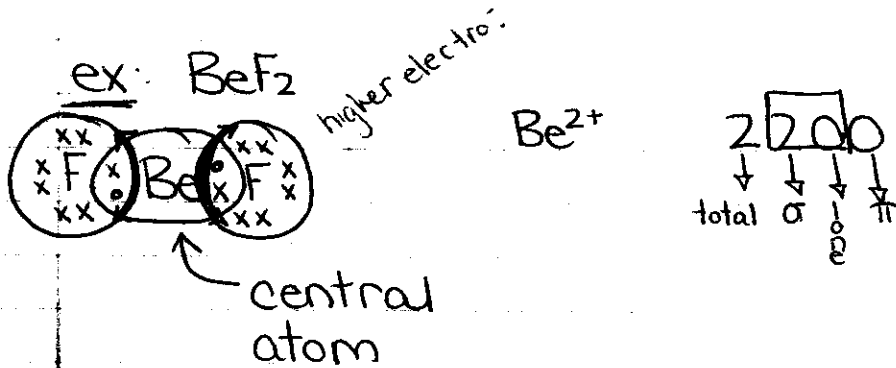 ex: BeF2
higher electro.
Be2+
2 2 0 0
total σ l.p e π
F Be F
central
atom